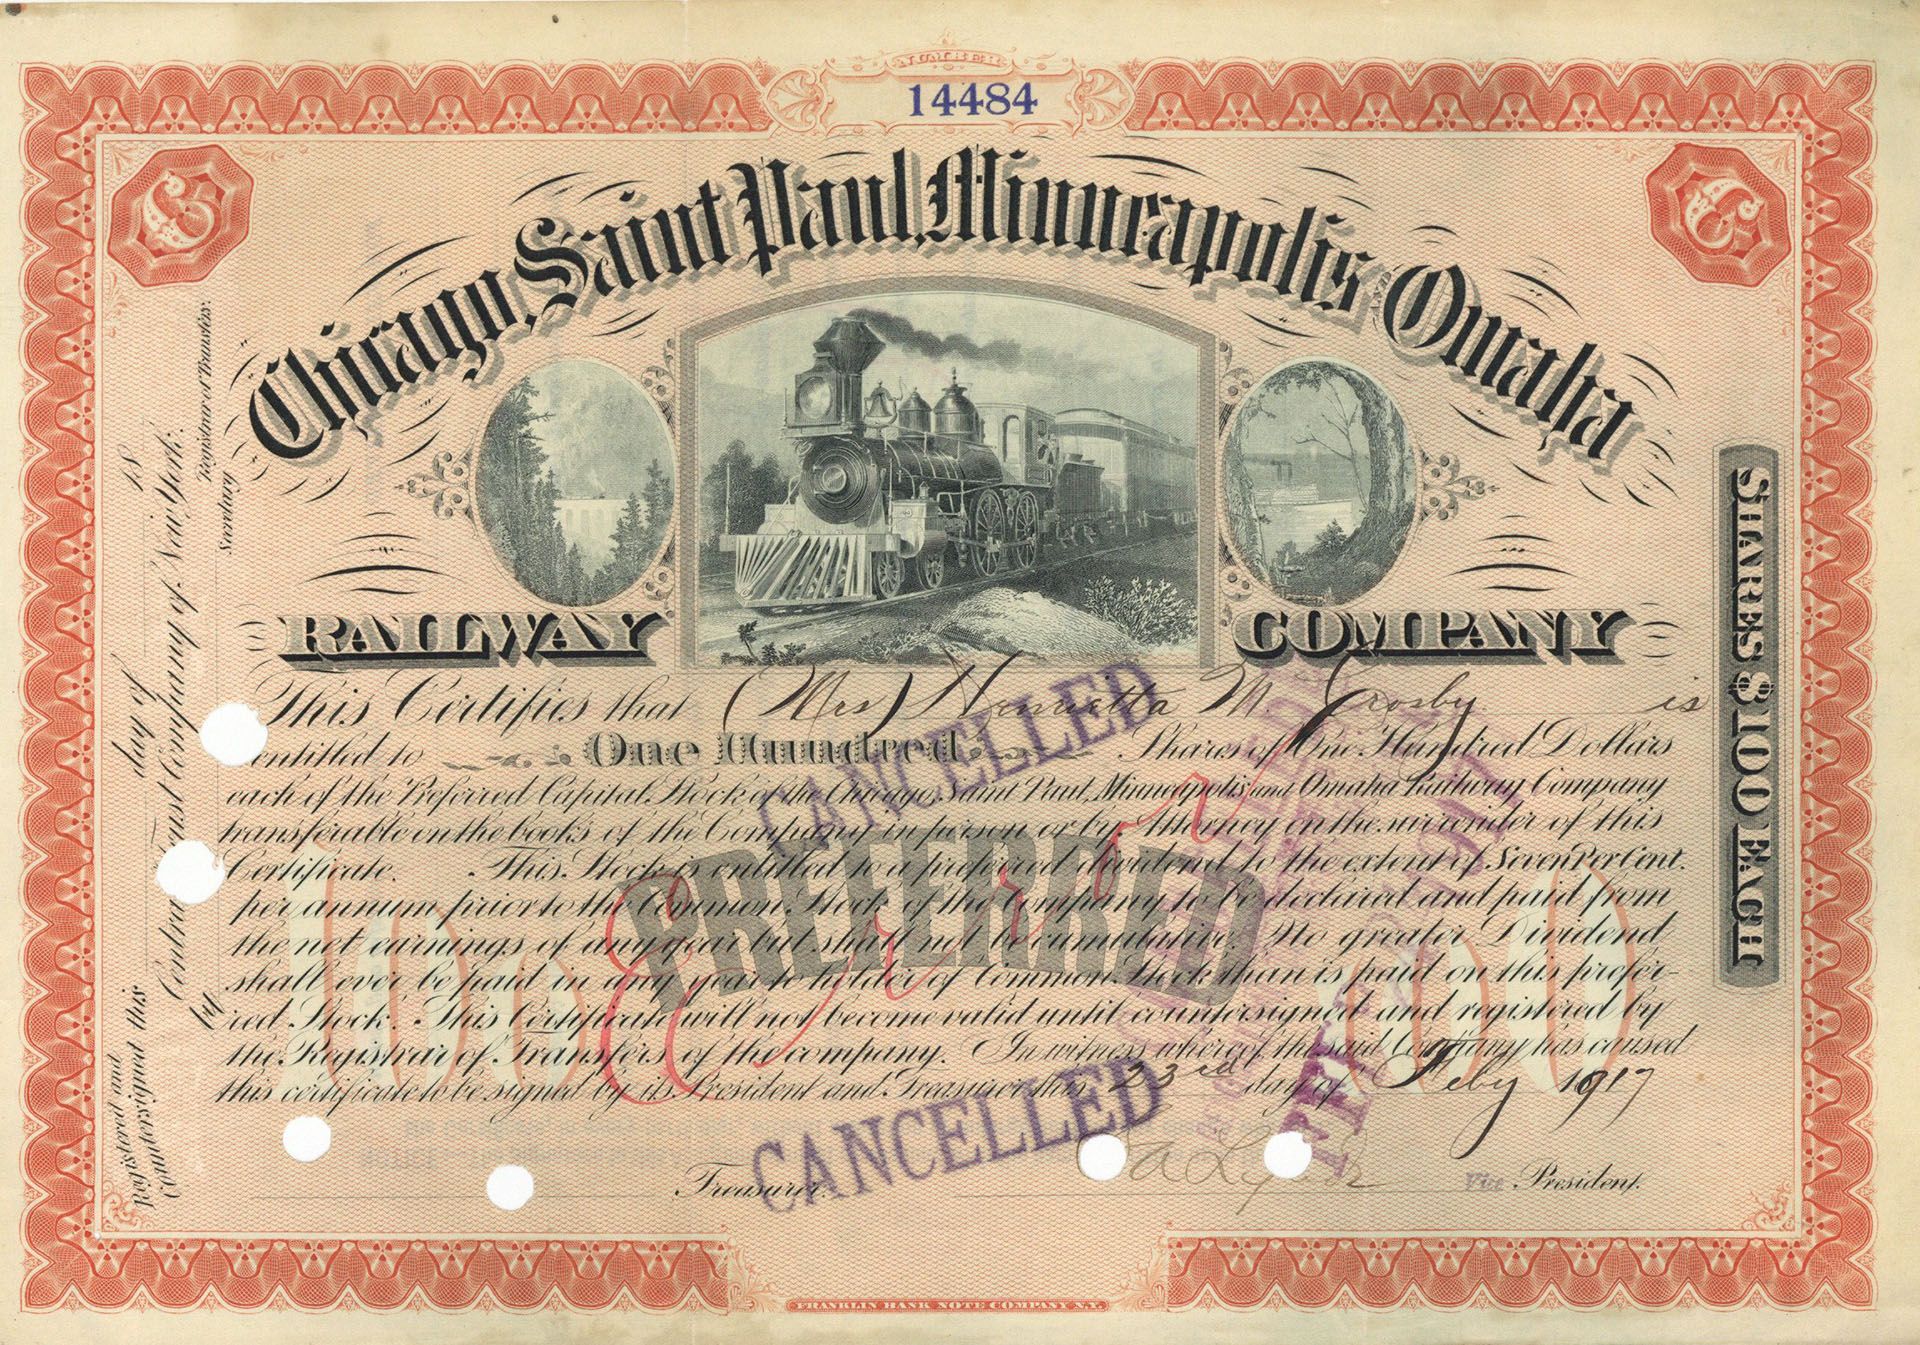 NUMBER
14484
Chicago, Saint Paul, Minneapolis AND Omaha
RAILWAY COMPANY
SHARES $100 EACH
This Certifies that (Mrs) Henrietta M. Crosby is
entitled to One Hundred Shares of One Hundred Dollars
each of the Preferred Capital Stock of the Chicago, Saint Paul, Minneapolis and Omaha Railway Company
transferable on the books of the Company in person or by Attorney on the surrender of this
Certificate. This Stock is entitled to a preferred dividend to the extent of Seven Per Cent.
per annum prior to the Common Stock of the Company to be declared and paid from
the net earnings of any year but shall not be cumulative. No greater Dividend
shall ever be paid in any year to holder of Common Stock than is paid on this prefer-
red Stock. This Certificate will not become valid until countersigned and registered by
the Registrar of Transfers of the company. In witness whereof, the said Company has caused
this certificate to be signed by its President and Treasurer this 23rd day of Feby 1917
PREFERRED
100 100
Error
CANCELLED
CANCELLED
FEB
Treasurer. Vice President.
Registered and
Countersigned this day of 18
Central Trust Company of New York.
Registrar of Transfers
by Secretary
FRANKLIN BANK NOTE COMPANY N.Y.